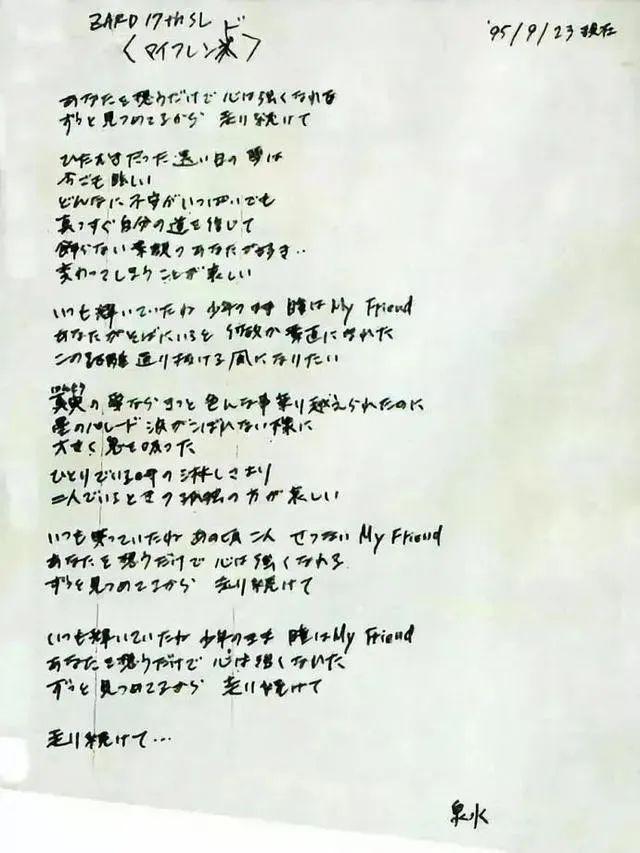 ZARD 17th SL
〈マイフレンド〉
'95/9/23現在
あなたを想うだけで 心は強くなれる
ずっと見つめてるから 走り続けて
ひたむきだった遠い日の夢は
今でも眩しい
どんなに不安がいっぱいでも
真っすぐ自分の道を信じて
飾らない素顔のあなたが好き‥
変わってしまうことが哀しい
いつも輝いていたね 少年のまま 瞳はMy Friend
あなたがそばにいると 何故か素直になれた
この距離通り抜ける風になりたい
真実の夢ならきっと色んな事乗り越えられたのに
星のパレード 涙がこぼれない様に
大きく息を吸った
ひとりでいる時の淋しさより
二人でいるときの孤独の方が哀しい
いつも笑っていたね あの頃二人 せつないMy Friend
あなたを想うだけで 心は強くなれる
ずっと見つめてるから 走り続けて
いつも輝いていたね 少年のまま 瞳はMy Friend
あなたを想うだけで 心は強くなれた
ずっと見つめてるから 走り続けて
走り続けて…
泉水